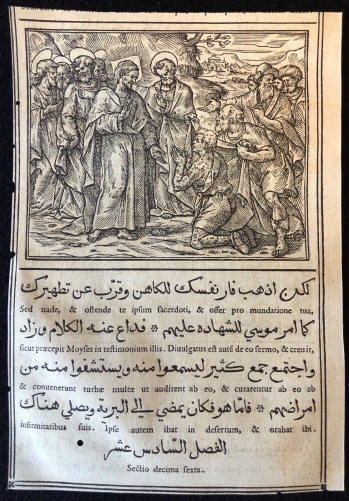 لكن اذهب فار نفسك للكاهن وقرّب عن تطهيرك
Sed uade, & ostende te ipsum sacerdoti, & offer pro mundatione tua,
كما امر موسي للشهاده عليهم * فذاع عنه الكلام وزاد
sicut præcepit Moyses in testimonium illis. Diuulgatus est autē de eo sermo, & creuit,
واجتمع جمع كثير ليسمعوا منه ويستشفوا منه من
& conuenerunt turbæ multæ ut audirent ab eo, & curarentur ab eo ab
امراضهم * فامّا هو فكان يمضي الي البرية ويصلي هناك
infirmitatibus suis. Ipse autem ibat in desertum, & orabat ibi.
الفصل السّادس عشر
Sectio decima sexta.